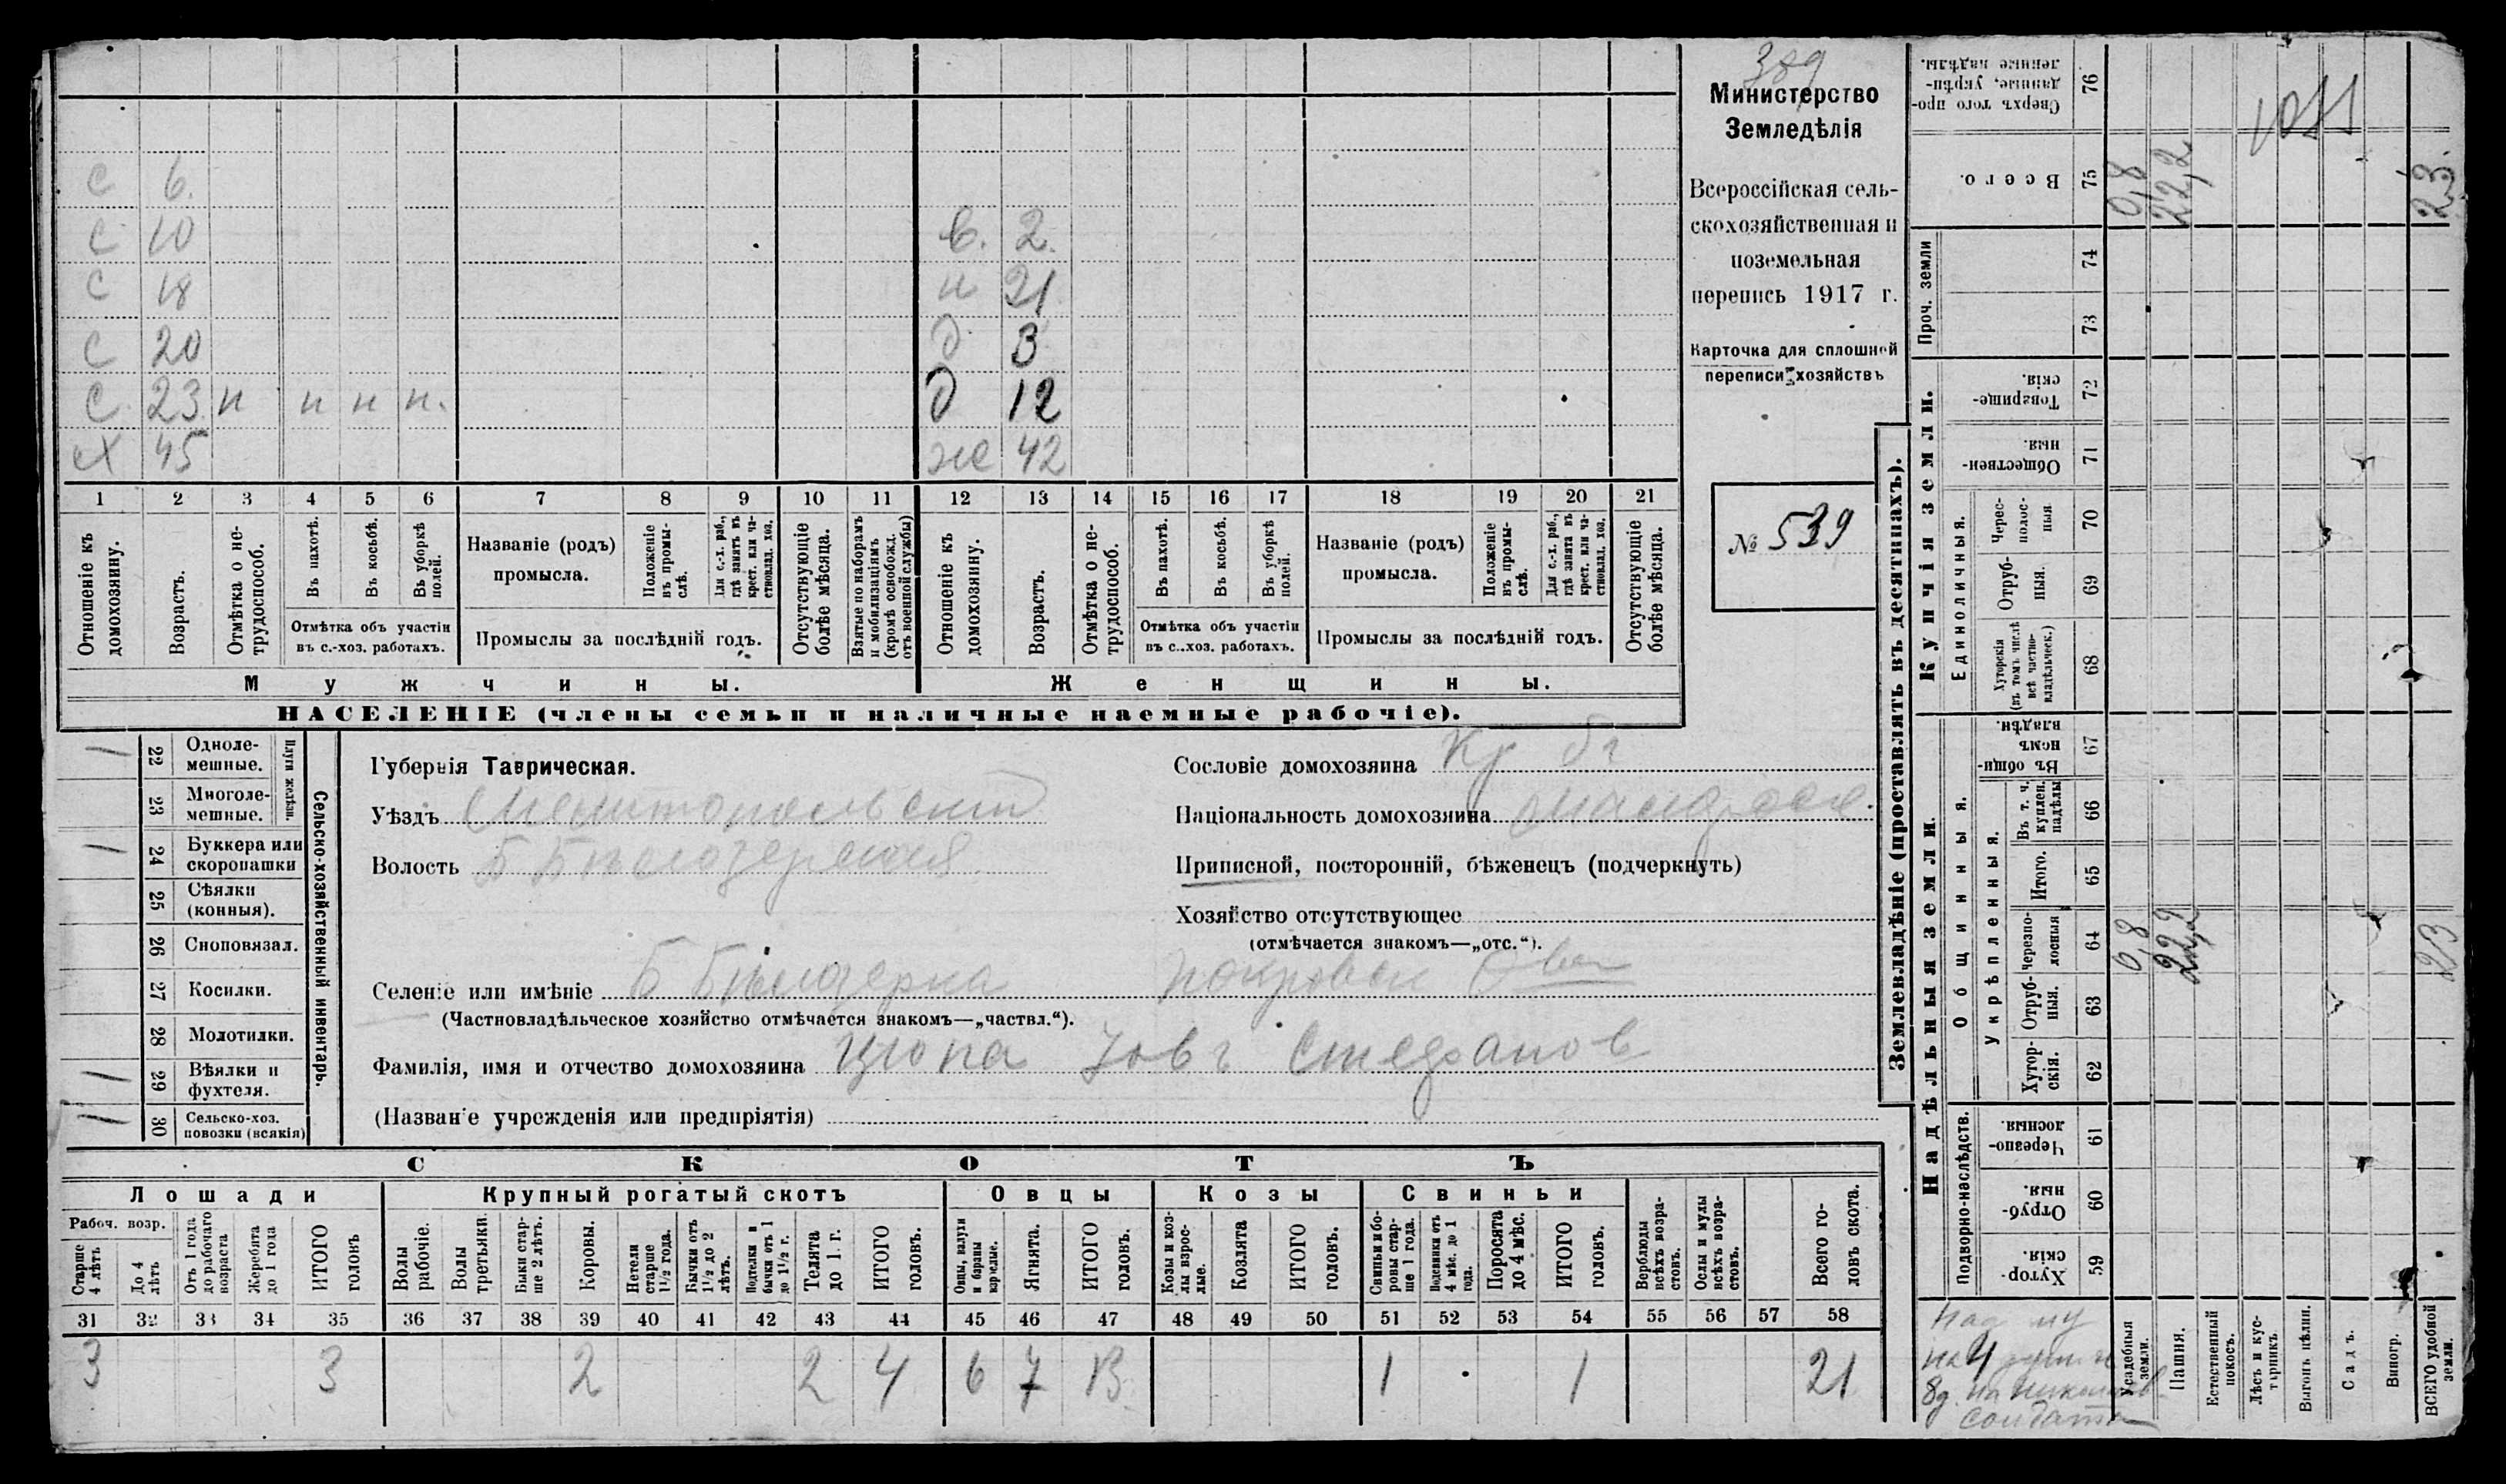 389
Министерство
Земледѣлія
Всероссійская сель-
скохозяйственная и
поземельная
перепись 1917 г.
Карточка для сплошной
переписи хозяйствъ
№ 539
с 6.
с 10 в. 2.
с 18 н 21
с 20 д 3
с 23 н н н н. д 12
х 45 же 42
1 2 3 4 5 6 7 8 9 10 11 12 13 14 15 16 17 18 19 20 21
Отношеніе къ домохозяину.
Возрастъ.
Отмѣтка о не-трудоспособ.
Въ пахотѣ.
Въ косьбѣ.
Въ уборкѣ полей.
Отмѣтка объ участіи
въ с.-хоз. работахъ.
Названіе (родъ)
промысла.
Положеніе въ промы-слѣ.
Для с.-х. раб., гдѣ занятъ въ крест. или ча-стновлад. хоз.
Промыслы за послѣдній годъ.
Отсутствующіе болѣе мѣсяца.
Взятые по наборамъ и мобилизаціямъ (кромѣ освобожд. отъ военной службы)
Отношеніе къ домохозяину.
Возрастъ.
Отмѣтка о не-трудоспособ.
Въ пахотѣ.
Въ косьбѣ.
Въ уборкѣ полей.
Отмѣтка объ участіи
въ с.-хоз. работахъ.
Названіе (родъ)
промысла.
Положеніе въ промы-слѣ.
Для с.-х. раб., гдѣ занята въ крест. или ча-стновлад. хоз.
Промыслы за послѣдній годъ.
Отсутствующіе болѣе мѣсяца.
Мужчины. Женщины.
НАСЕЛЕНІЕ (члены семьи и наличные наемные рабочіе).
Сельско-хозяйственный инвентарь.
Плуги желѣзн.
22 Одноле-мешные. 1
23 Многоле-мешные.
24 Буккера или скоропашки 1
25 Сѣялки (конныя).
26 Сноповязал.
27 Косилки.
28 Молотилки.
29 Вѣялки и фухтеля. 1
30 Сельско-хоз. повозки (всякія) 1
Губернія Таврическая.
Уѣздъ Мелитопольскій
Волость Б Бѣлозерская
Сословіе домохозяина Кр
Національность домохозяина малоросс.
Приписной, посторонній, бѣженецъ (подчеркнуть)
Хозяйство отсутствующее
(отмѣчается знакомъ—„отс.“).
Селеніе или имѣніе Б Бѣлозерка Покровск Общ
(Частновладѣльческое хозяйство отмѣчается знакомъ—„частвл.“).
Фамилія, имя и отчество домохозяина Цюпа Iовъ Стефанов
(Названіе учрежденія или предпріятія)
СКОТЪ
Лошади Крупный рогатый скотъ Овцы Козы Свиньи
Рабоч. возр.
Старше 4 лѣтъ
До 4 лѣтъ
Отъ 1 года до рабочаго возраста
Жеребята до 1 года
ИТОГО головъ
Волы рабочіе.
Волы третьяки.
Быки стар-ше 2 лѣтъ.
Коровы.
Нетели старше 1½ года.
Бычки отъ 1½ до 2 лѣтъ.
Подтелки и бычки отъ 1 до 1½ г.
Телята до 1 г.
ИТОГО головъ.
Овцы, валухи и бараны взрослые.
Ягнята.
ИТОГО головъ.
Козы и коз-лы взрос-лые.
Козлята
ИТОГО головъ.
Свиньи и бо-ровы стар-ше 1 года.
Подсвинки отъ 4 мѣс. до 1 года.
Поросята до 4 мѣс.
ИТОГО головъ.
Верблюды всѣхъ возра-стовъ.
Ослы и мулы всѣхъ возра-стовъ.
Всего го-ловъ скота.
31 32 33 34 35 36 37 38 39 40 41 42 43 44 45 46 47 48 49 50 51 52 53 54 55 56 57 58
3 3 2 2 4 6 7 13 1 1 21
Землевладѣніе (проставлять въ десятинахъ).
Надѣльныя земли.
Купчія земли.
Проч. земли
Подворно-наслѣдств.
Общинныя.
Укрѣпленныя.
Единоличныя.
Хутор-скія. 59
Отруб-ныя. 60
Черезпо-лосныя. 61
Хутор-скія. 62
Отруб-ныя. 63
Черезпо-лосныя 64
Итого. 65
Въ т. ч. куплен. надѣлы 66
Въ общи-номъ владѣн. 67
Хуторскія (въ томъ числѣ всѣ частно-владѣльческ.) 68
Отруб-ныя. 69
Черес-полос-ныя 70
Обществен-ныя. 71
Товарище-скія. 72
73
74
Всего. 75
Сверхъ того про-данные, укрѣп-ленные надѣлы. 76
Усадебныя земли. 0,8 0,8
Пашня. 22,2 22,2
Естественный покосъ.
Лѣсъ и кус-тарникъ.
Выгонъ цѣлин.
Садъ.
Виногр.
ВСЕГО удобной земли. 23 23.
солдата